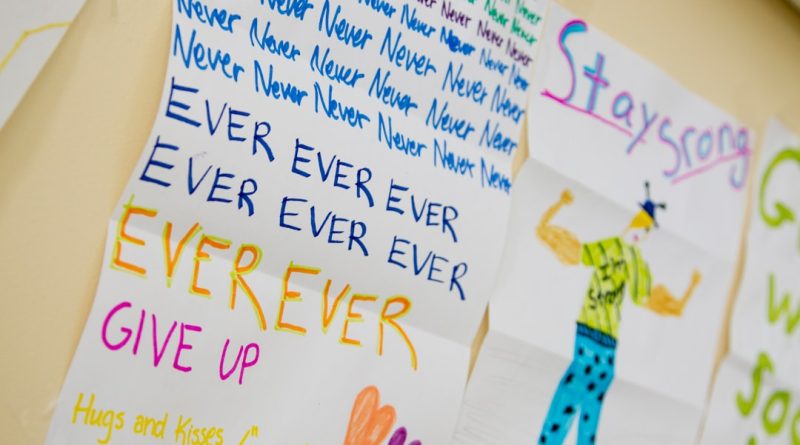 Never Never
Never Never Never
Never Never Never Never
Never Never Never Never Never
Never Never Never Never Never Never
Never Never Never Never Never Never
EVER EVER EVER
EVER EVER EVER
EVER EVER
GIVE UP
Hugs and Kisses
Stay srong
I'm
Strong